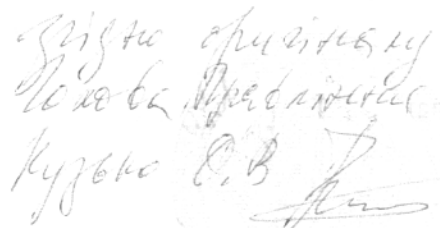 згідно оригіналу
Голова Правління
Кузько О.В